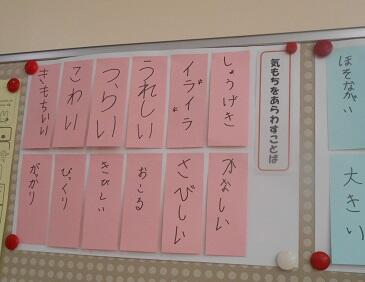 気もちをあらわすことば
しょうげき
イライラ
うれしい
つらい
こわい
きもちいい
かなしい
さびしい
おこる
きびしい
びっくり
がっかり
ほそながい
大きい